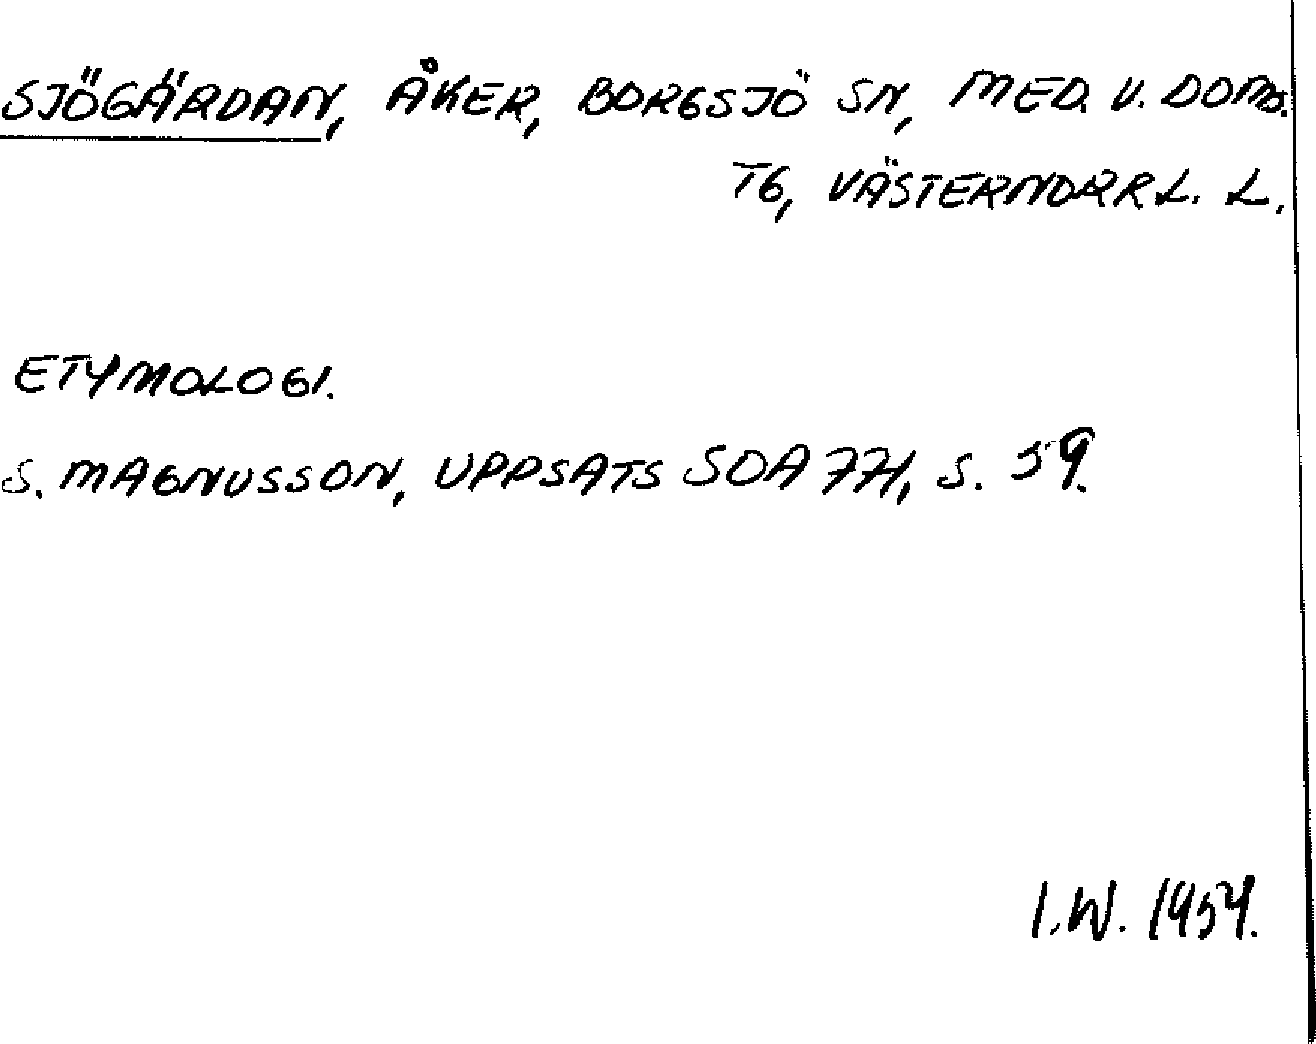 SJÖGÄRDAN, ÅKER, BORGSJÖ SN, MED. V. DOMS.
TG, VÄSTERNORRL. L.
ETYMOLOGI.
S. MAGNUSSON, UPPSATS SOA 771, S. 59.
I.W. 1954.